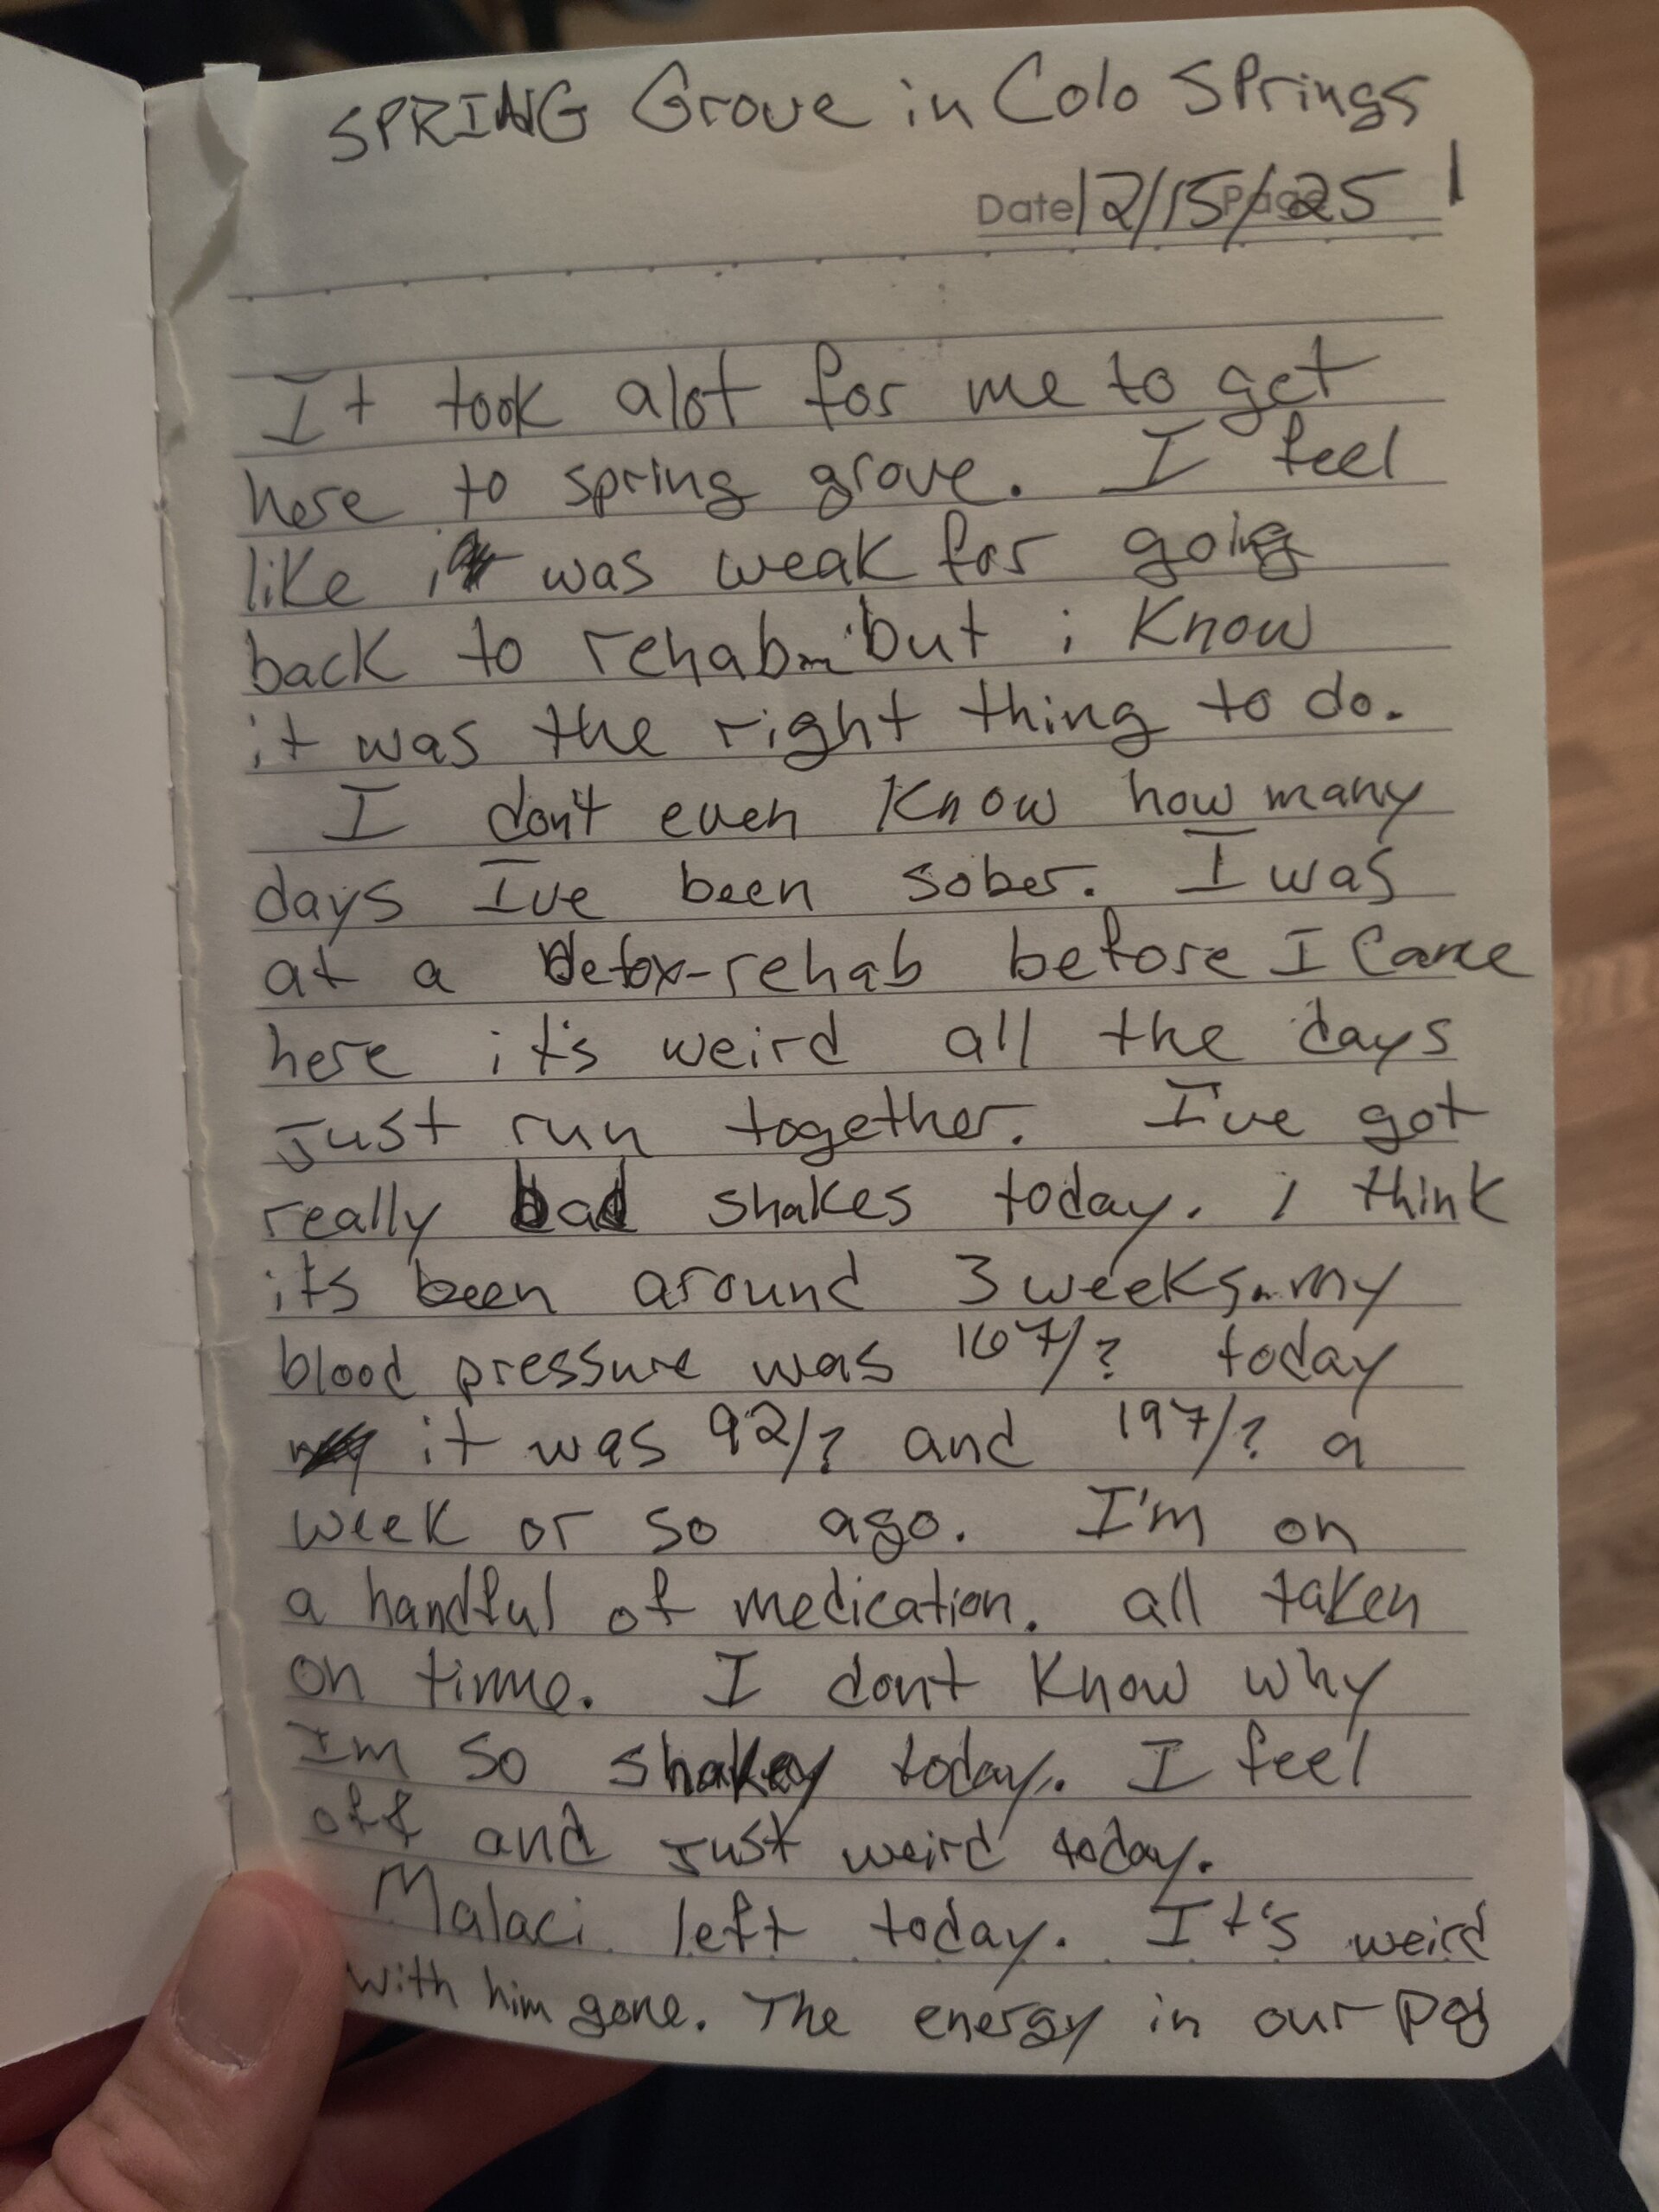 SPRING Grove in Colo Springs
Date 12/15/25 1
It took alot for me to get
here to spring grove. I feel
like i was weak for going
back to rehab but i know
it was the right thing to do.
I don't even know how many
days Ive been sober. I was
at a Detox-rehab before I came
here it's weird all the days
just run together. I've got
really bad shakes today. i think
its been around 3 weeks. my
blood pressure was 167/? today
it was 92/? and 197/? a
week or so ago. I'm on
a handful of medication. all taken
on time. I dont know why
Im so shakey today. I feel
off and just weird today.
Malaci left today. It's weird
with him gone. The energy in our